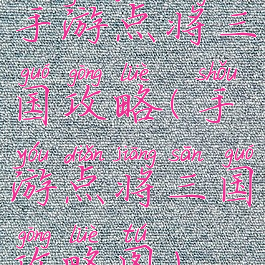 手游点将三
guó gōng lüè shǒu
国攻略(手
yóu diǎn jiāng sān guó
游点将三国
gōng lüè tú
攻略图)